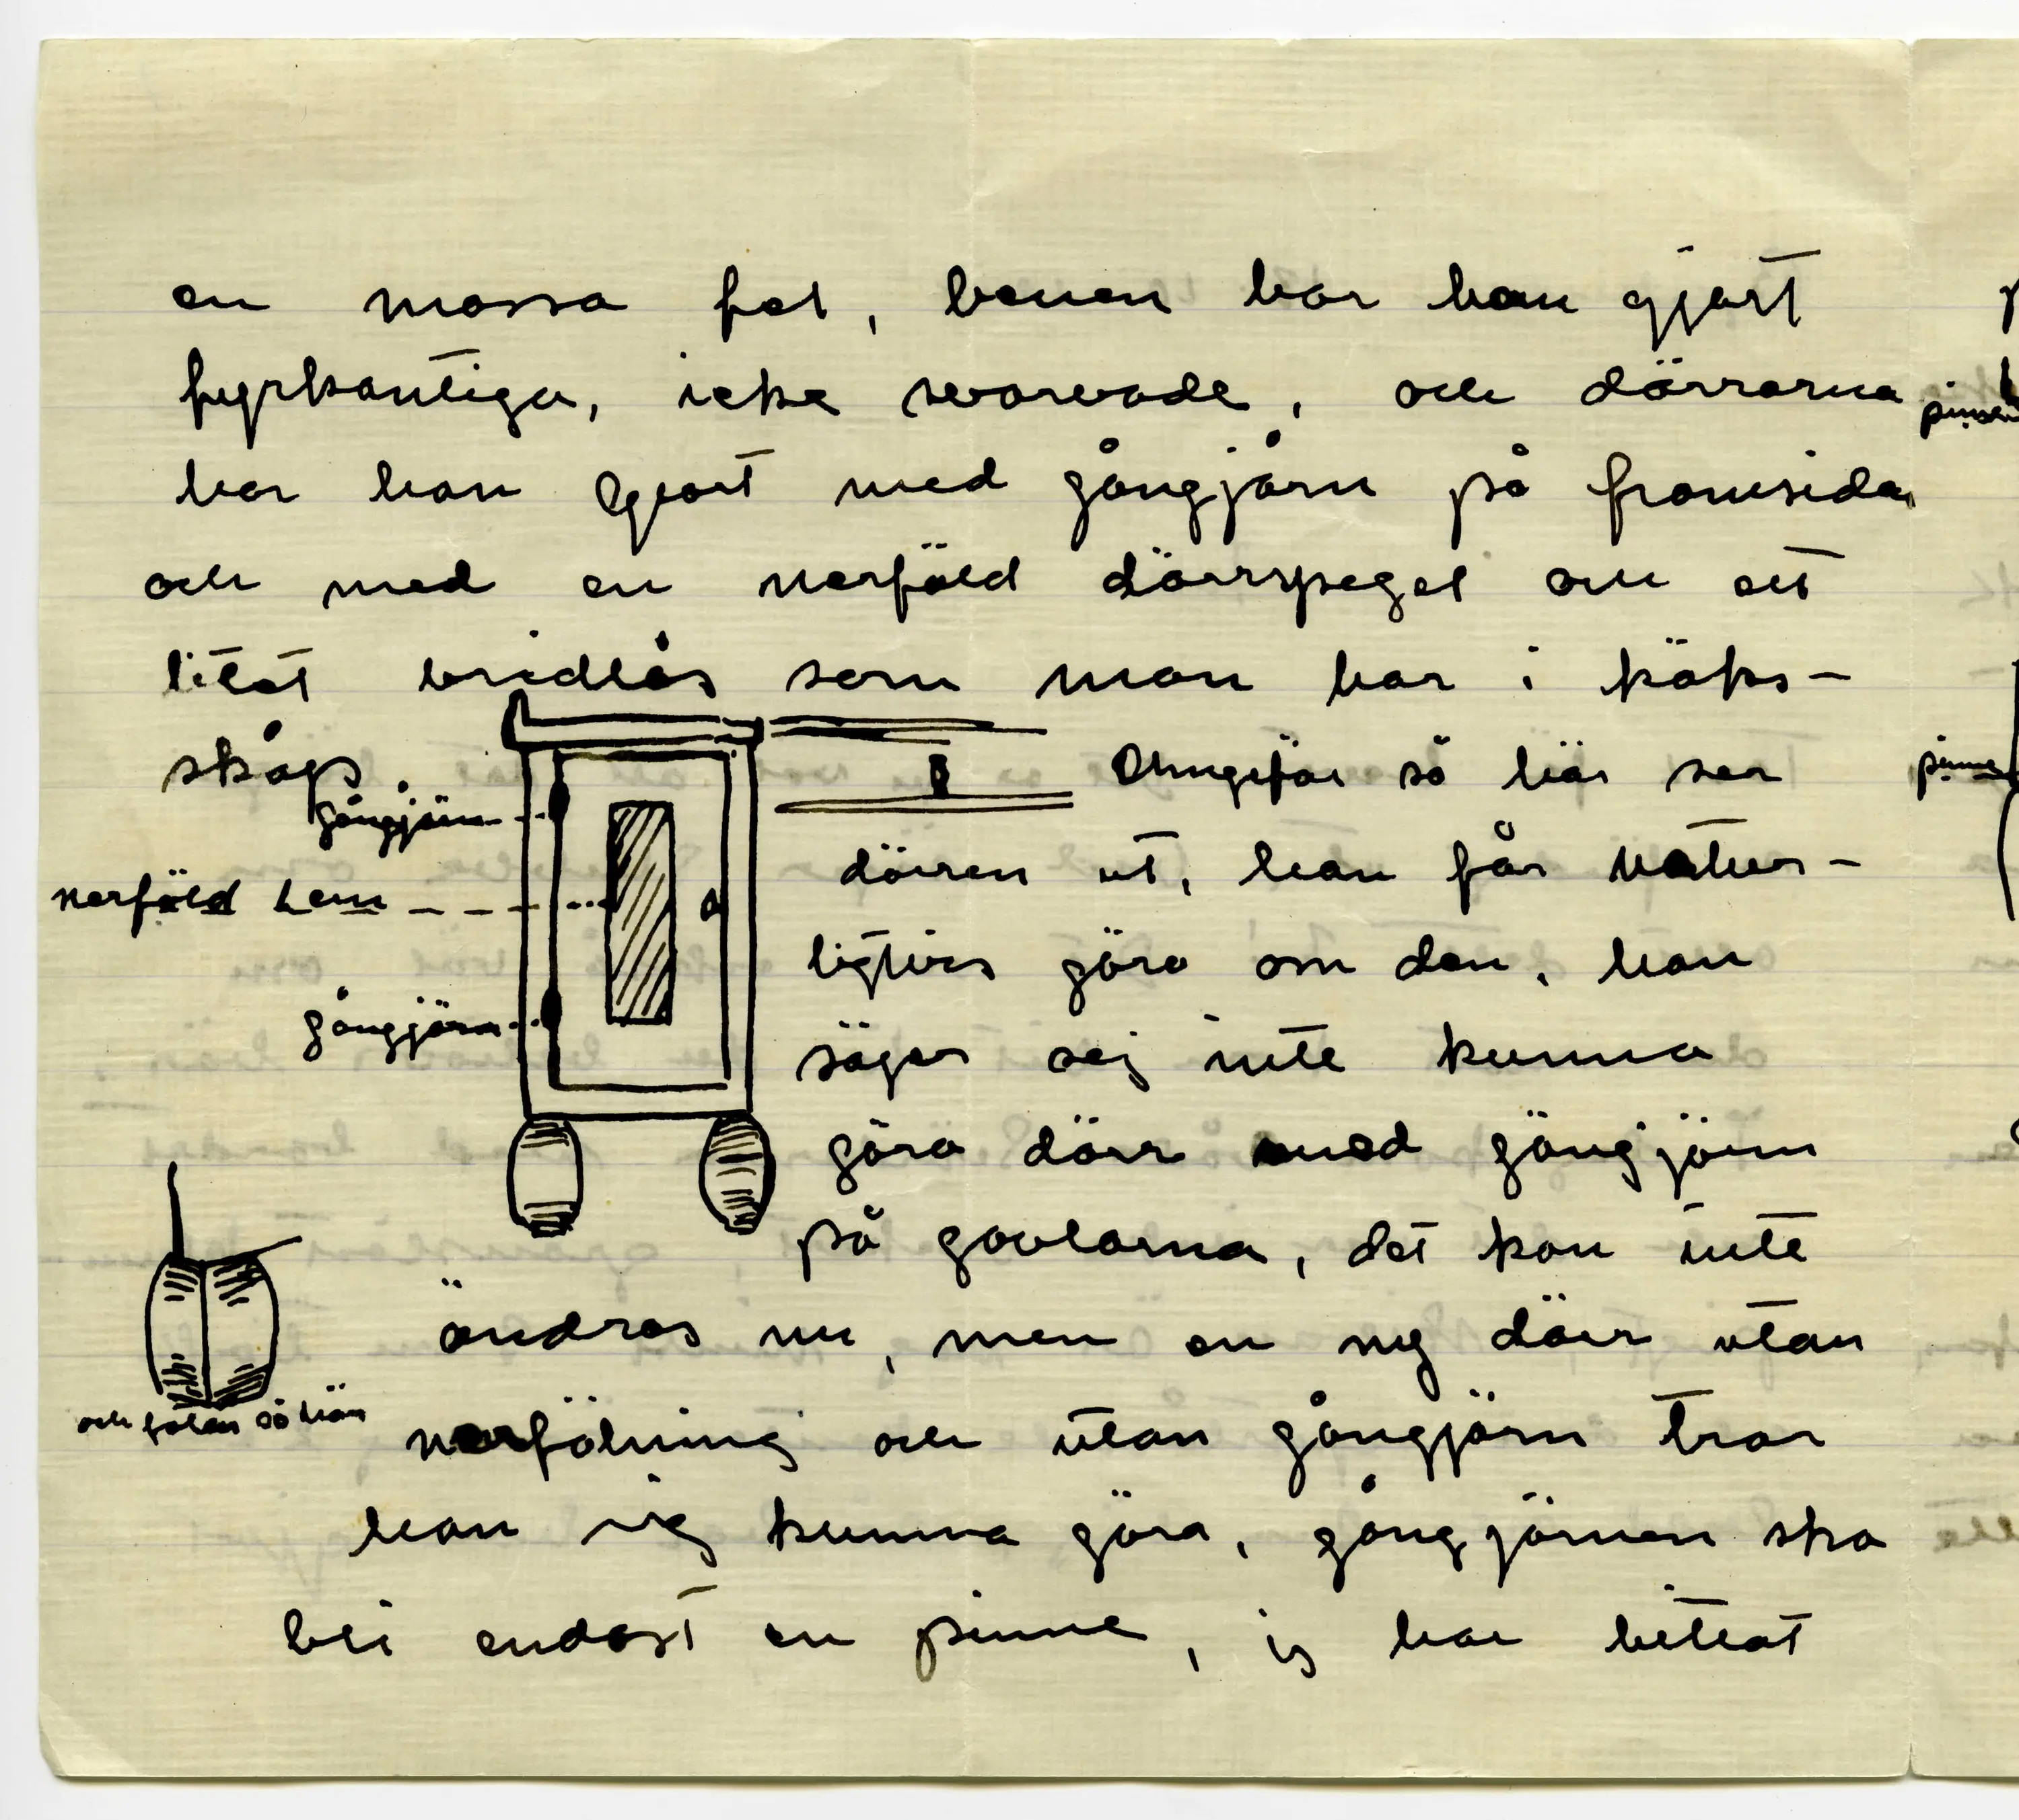 en massa fel, benen har han gjort
fyrkantiga, icke svarvade, och dörrarna
har han gjort med gångjärn på framsidan
och med en nerfäld dörrspegel och ett
litet vridlås som man har i köks-
skåp.
gångjärn
Ohngefär så här ser
dörren ut, han får natur-
nerfäld Lem
ligtvis göra om den, han
gångjärn
säger sej inte kunna
göra dörr med gångjärn
på gavlarna, det kan inte
ändras nu, men en ny dörr utan
och foten så här
nerfälning och utan gångjärn tror
han sig kunna göra, gångjärnen ska
bli endast en pinne, jg har bittat
pinne
pinne